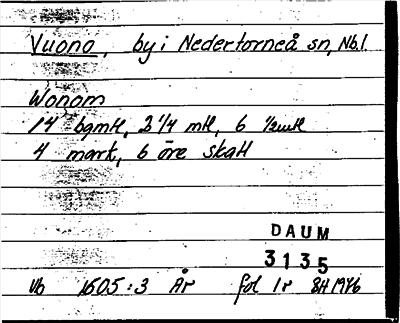 Vuono, by i Nedertorneå sn, Nb.l.
Wonom
14 bgmtl, 2 1/4 mtl, 6 1/2mtl
4 mark, 6 öre skatt
DAUM
3135
Vb 1605:3 År fol 1r BH 1946